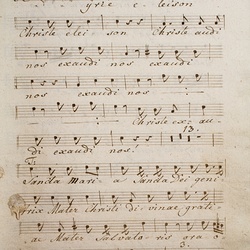 yrie eleison
Christe elei son Christe audi
nos exaudi nos exaudi
nos exaudi nos
Christe ex: au:
13.
di exaudi nos!
Sancta Mari a Sancta Dei geni
trix Mater Christi divinae grati
ae Mater Salvatoris
3.